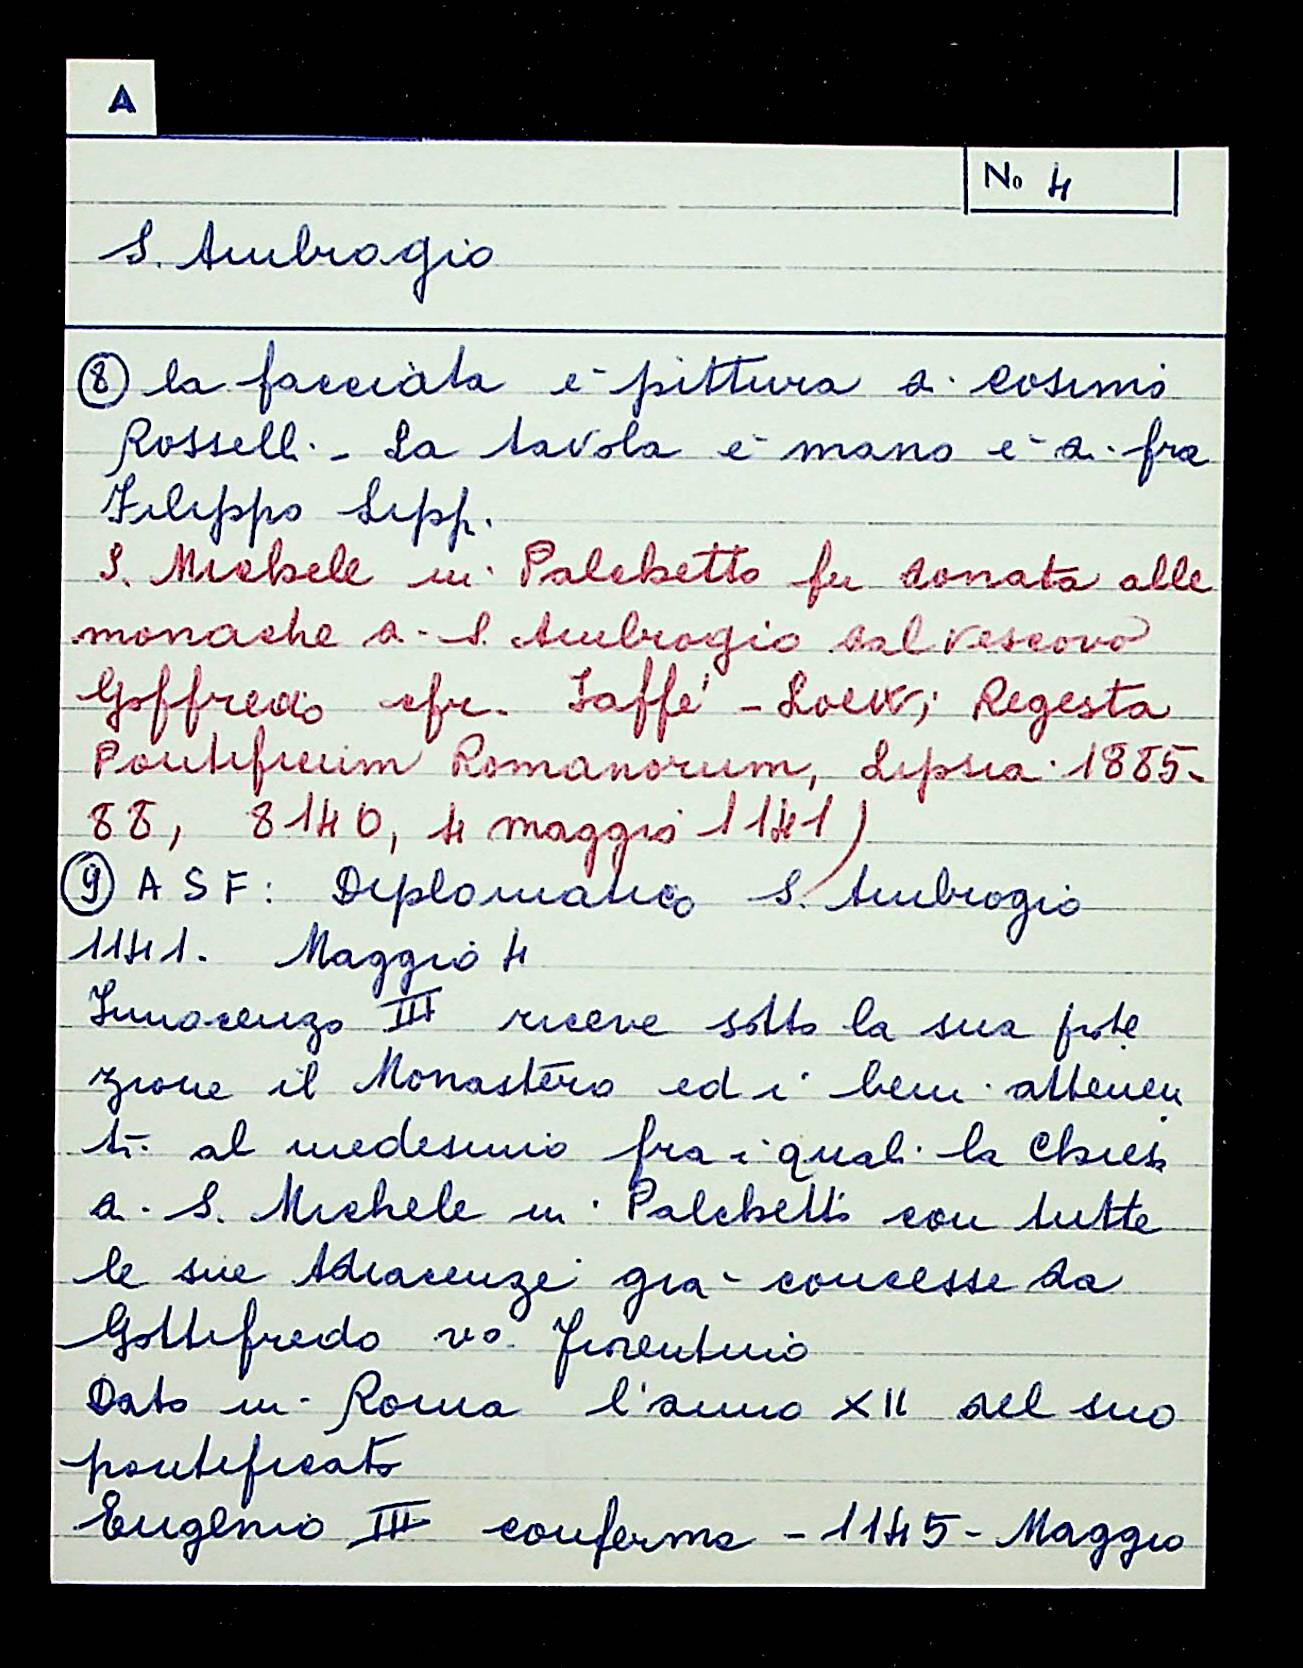 A
No 4
S. Ambrogio
8 la facciata è pittura di Cosimo
Rosselli - La tavola è mano è di fra
Filippo Lippi.
S. Michele in Palchetto fu donata alle
monache di S. Ambrogio dal vescovo
Goffredo cfr. Jaffé - Loew; Regesta
Pontificium Romanorum, Lipsia 1885-
88, 8140, 4 maggio 1141)
9 ASF: Diplomatico S. Ambrogio
1141. Maggio 4
Innocenzo III riceve sotto la sua prote
zione il Monastero ed i beni attenen
ti al medesimo fra i quali la Chiesa
di S. Michele in Palchetto con tutte
le sue Adiacenze già concesse da
Gottifredo vo. Fiorentino
Dato in Roma l'anno XII del suo
pontificato
Eugenio III conferma - 1145 - Maggio